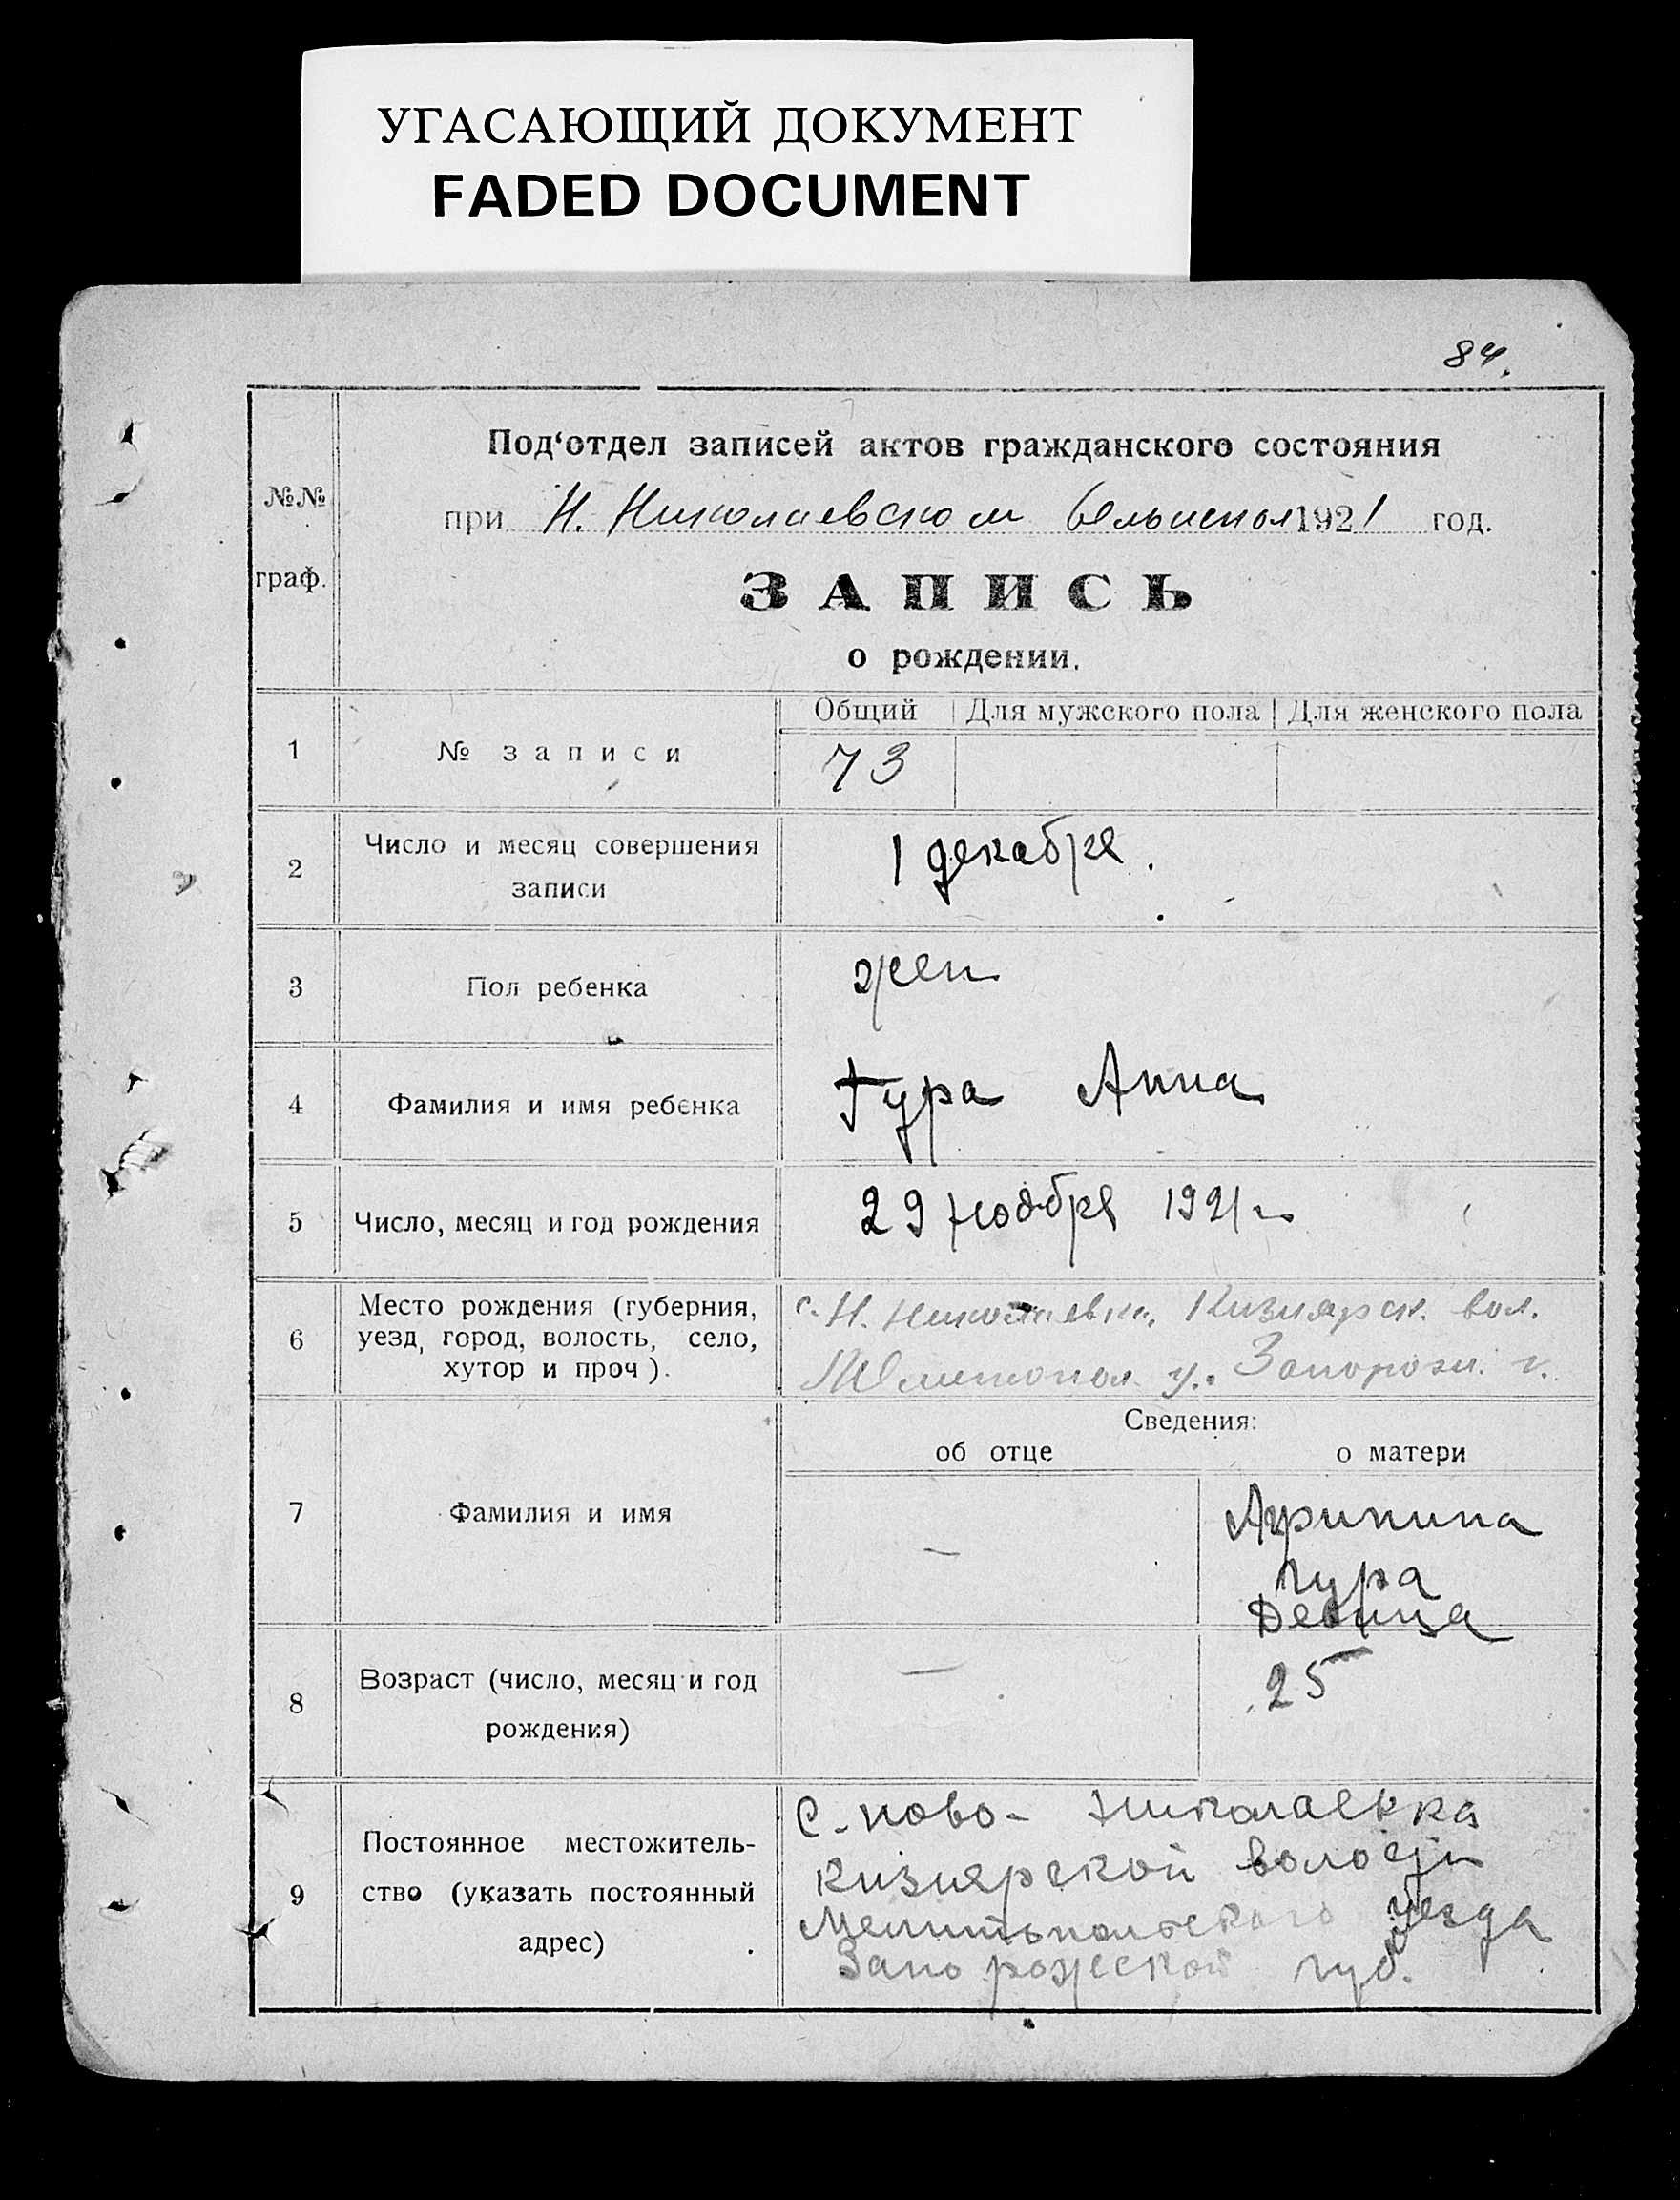 УГАСАЮЩИЙ ДОКУМЕНТ
FADED DOCUMENT
84.
№№
граф.
Под‘отдел записей актов гражданского состояния
при Н. Николаевском 1921 год.
ЗАПИСЬ
о рождении.
1 № записи
Общий Для мужского пола Для женского пола
73
2 Число и месяц совершения
записи
1 декабря.
3 Пол ребенка
жен
4 Фамилия и имя ребенка
Гура Анна
5 Число, месяц и год рождения
29 ноября 1921 г.
6 Место рождения (губерния,
уезд, город, волость, село,
хутор и проч).
с. Н. Николаевка, Кизиярск. вол.
Мелитопол. у. Запорож. г.
Сведения:
об отце о матери
7 Фамилия и имя
—
Агрипина
Гура
Девица
8 Возраст (число, месяц и год
рождения)
—
25
9 Постоянное местожитель-
ство (указать постоянный
адрес)
с. ново- николаевка
кизиярской волости
Мелитопольского уезда
Запорожской губ.